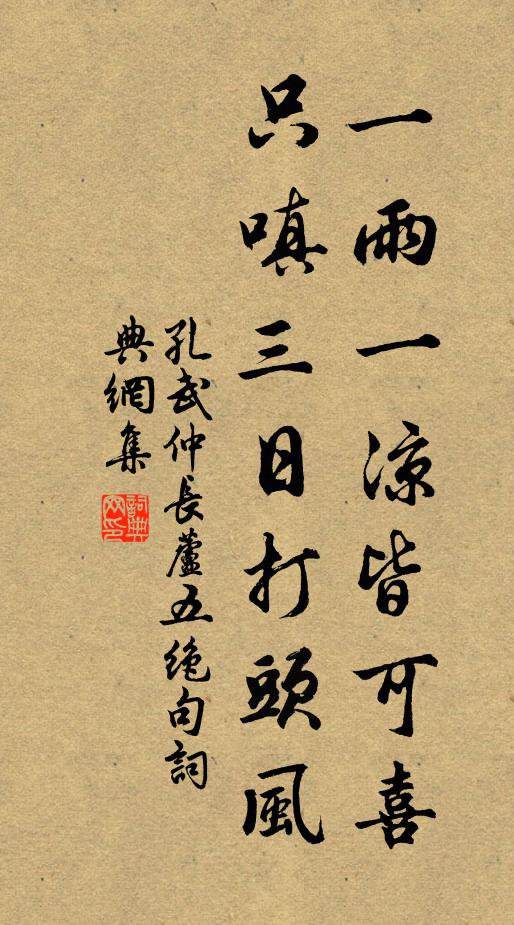 一雨一涼皆可喜
只嗔三日打頭風
孔武仲長蘆五絕句詞
典網集
詞典网印